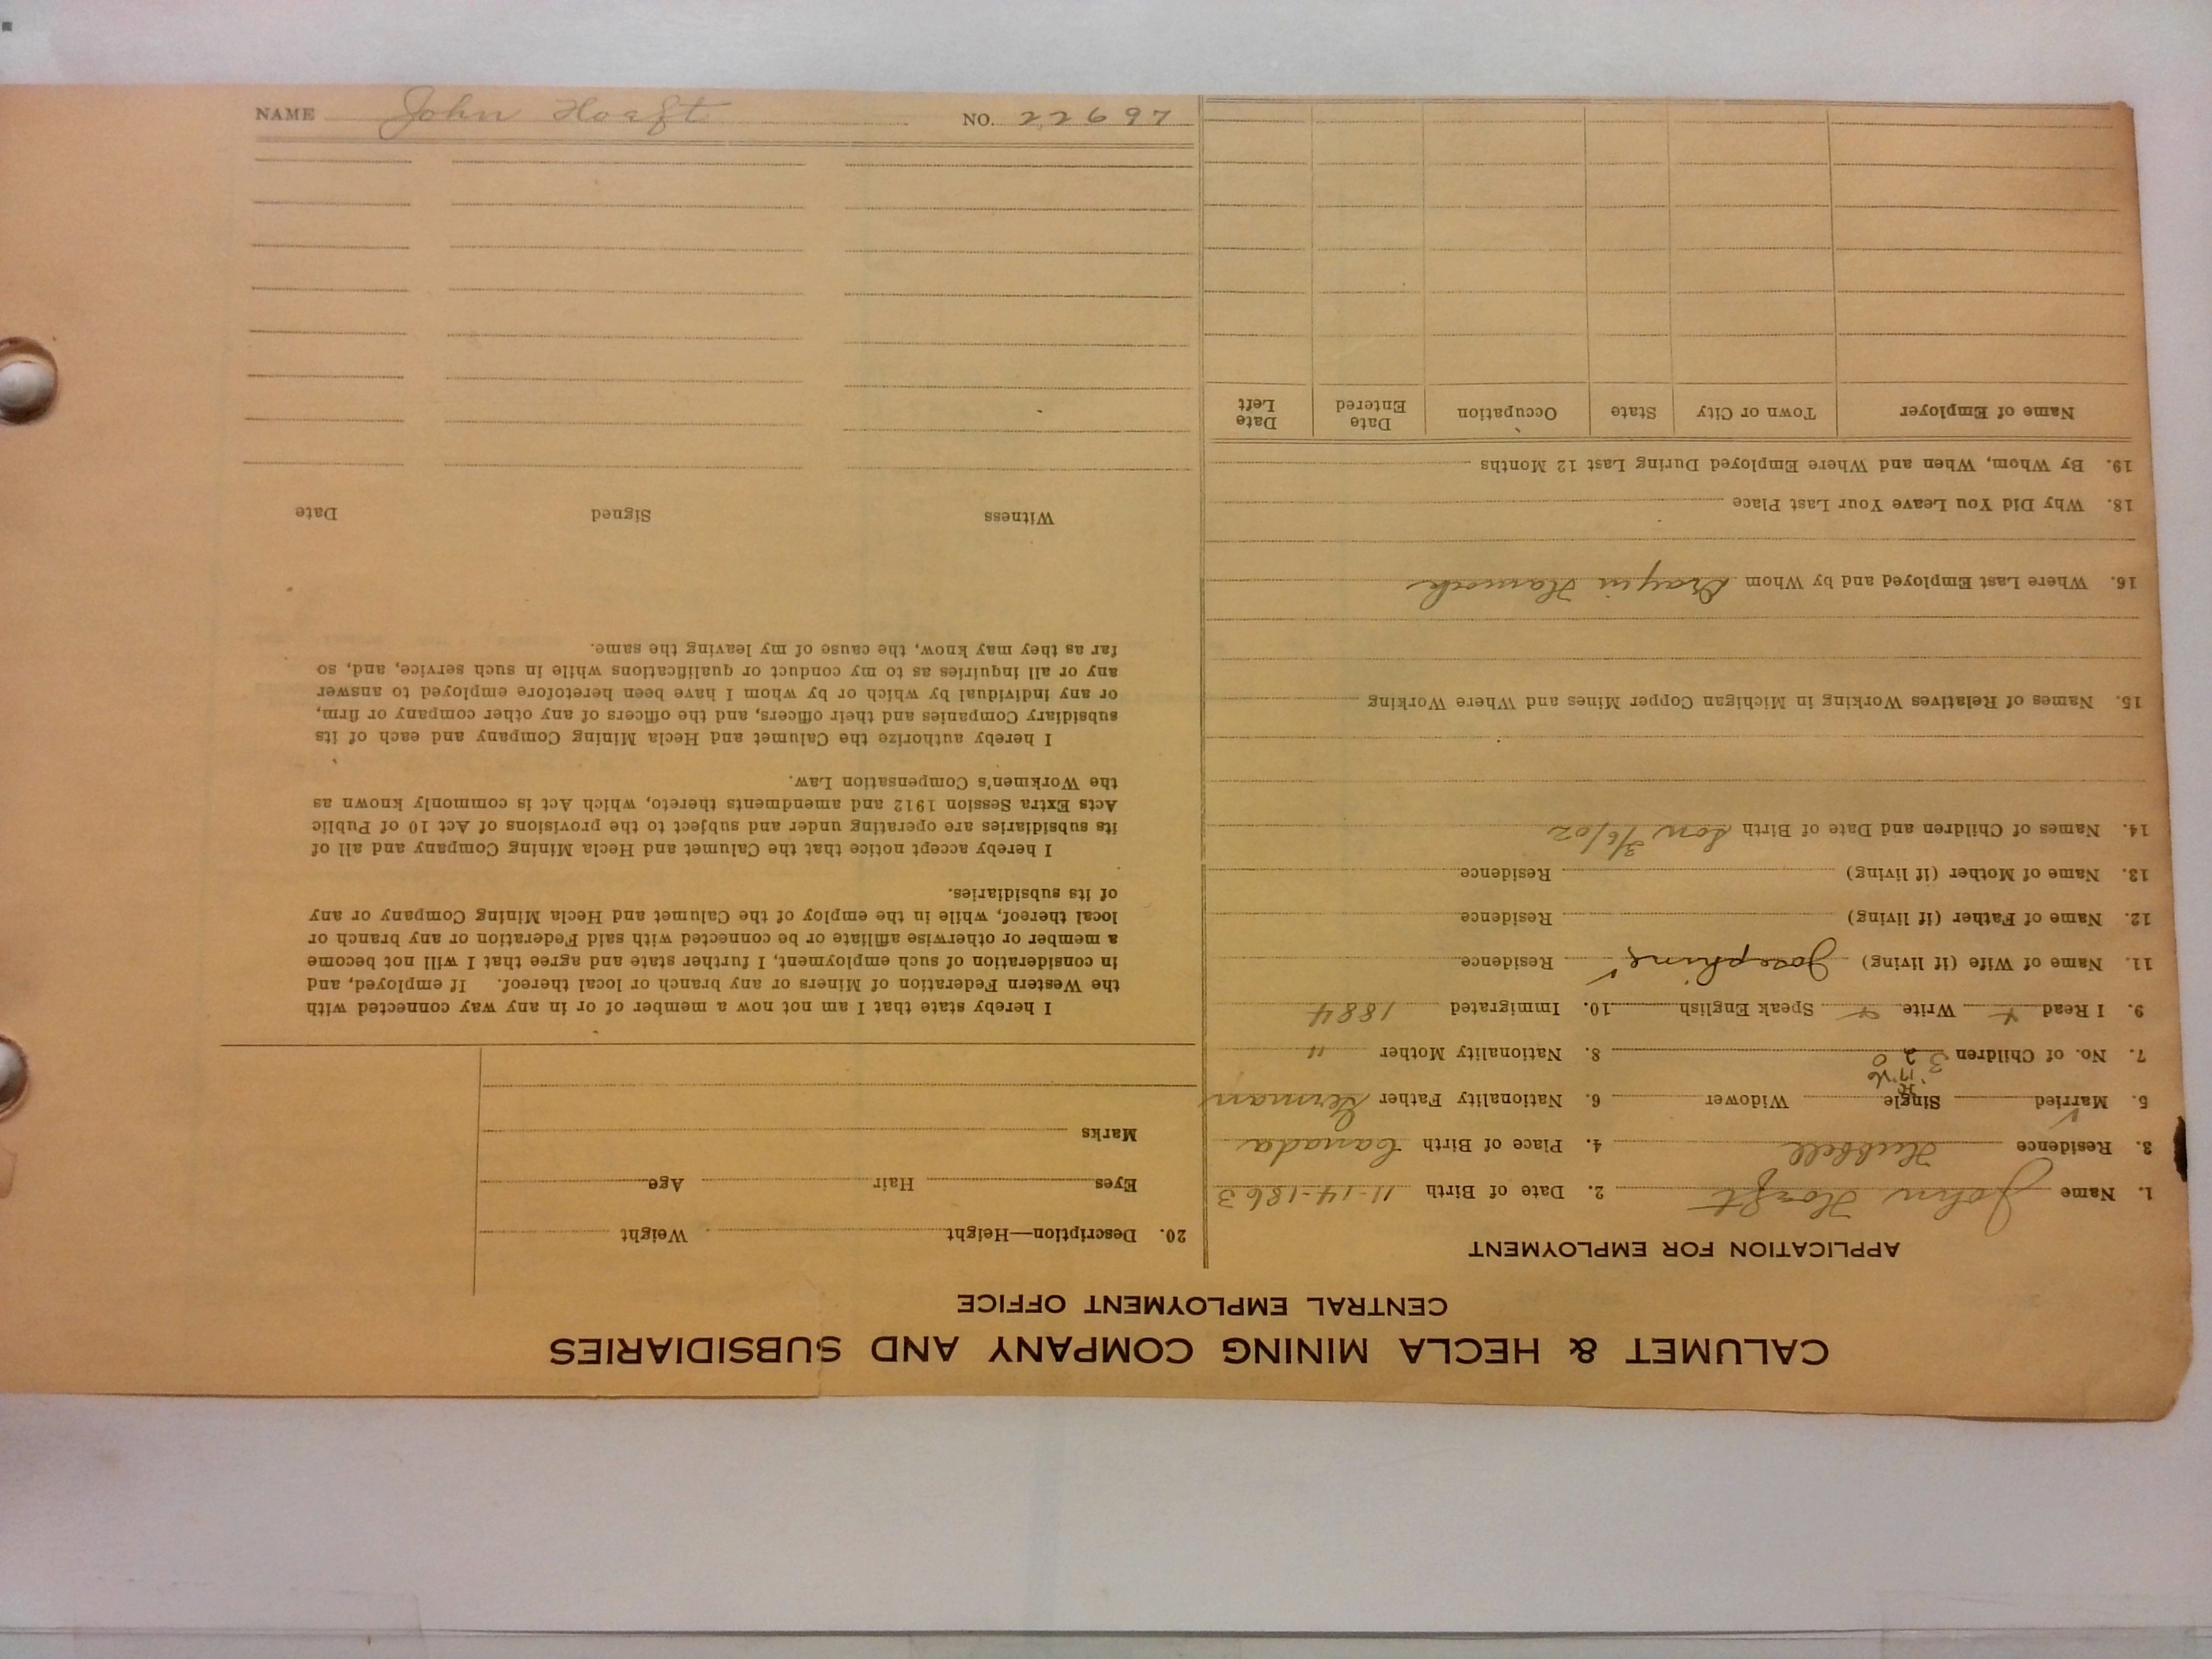 CALUMET & HECLA MINING COMPANY AND SUBSIDIARIES
CENTRAL EMPLOYMENT OFFICE
APPLICATION FOR EMPLOYMENT
1. Name John Hooft 2. Date of Birth 11-14-1863
3. Residence Hubbell 4. Place of Birth Canada
5. Married Single Widower 6. Nationality Father German
7. No. of Children 3 2 0 8. Nationality Mother "
9. I Read Write Speak English 10. Immigrated 1884
11. Name of Wife (if living) Josephine Residence
12. Name of Father (if living) Residence
13. Name of Mother (if living) Residence
14. Names of Children and Date of Birth Son 3/6/02
15. Names of Relatives Working in Michigan Copper Mines and Where Working
16. Where Last Employed and by Whom Dray in Hancock
18. Why Did You Leave Your Last Place
19. By Whom, When and Where Employed During Last 12 Months
Name of Employer Town or City State Occupation Date Entered Date Left
20. Description—Height Weight
Eyes Hair Age
Marks
I hereby state that I am not now a member of or in any way connected with
the Western Federation of Miners or any branch or local thereof. If employed, and
in consideration of such employment, I further state and agree that I will not become
a member or otherwise affiliate or be connected with said Federation or any branch or
local thereof, while in the employ of the Calumet and Hecla Mining Company or any
of its subsidiaries.
I hereby accept notice that the Calumet and Hecla Mining Company and all of
its subsidiaries are operating under and subject to the provisions of Act 10 of Public
Acts Extra Session 1912 and amendments thereto, which Act is commonly known as
the Workmen's Compensation Law.
I hereby authorize the Calumet and Hecla Mining Company and each of its
subsidiary Companies and their officers, and the officers of any other company or firm,
or any individual by which or by whom I have been heretofore employed to answer
any or all inquiries as to my conduct or qualifications while in such service, and, so
far as they may know, the cause of my leaving the same.
Witness Signed Date
NAME John Hooft NO. 22697